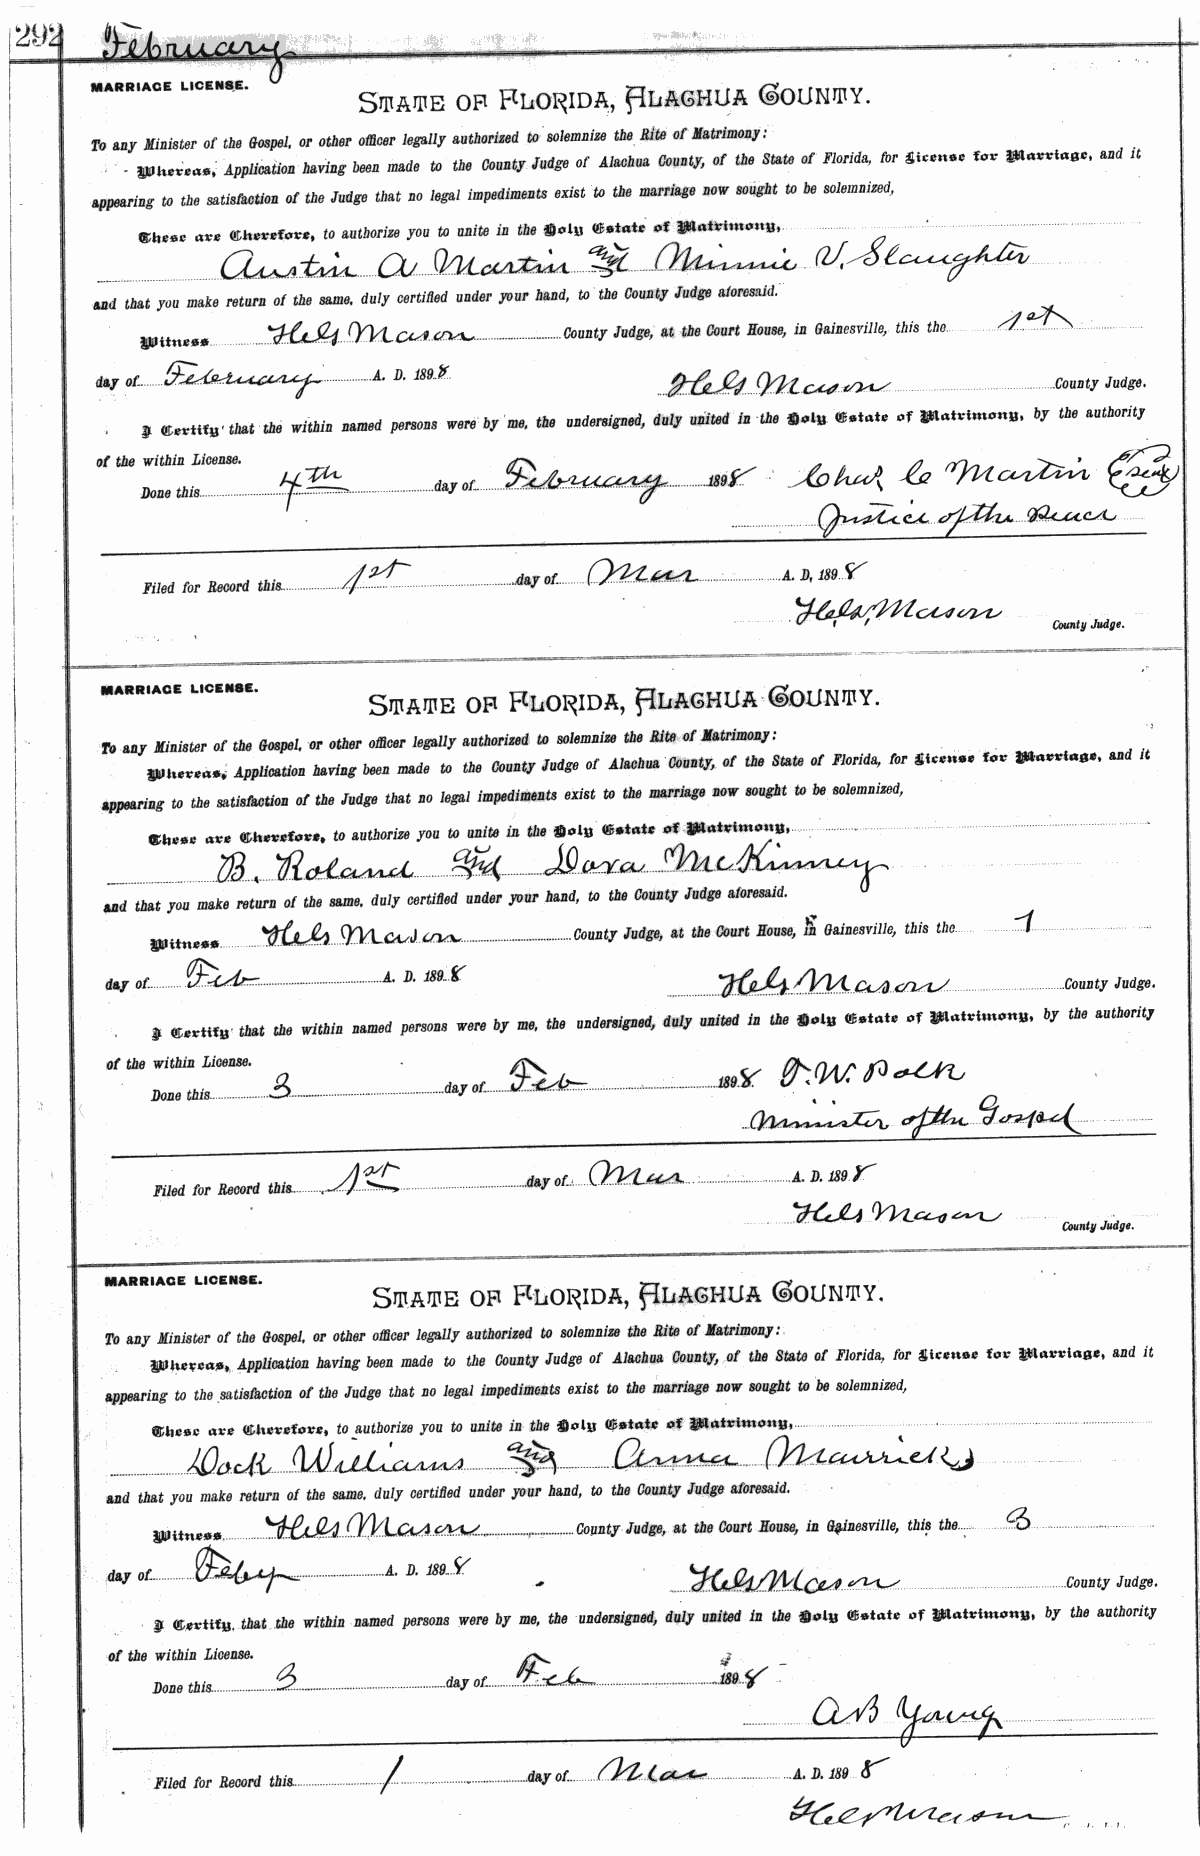 292 February
MARRIAGE LICENSE.
STATE OF FLORIDA, ALACHUA COUNTY.
To any Minister of the Gospel, or other officer legally authorized to solemnize the Rite of Matrimony:
Whereas, Application having been made to the County Judge of Alachua County, of the State of Florida, for License for Marriage, and it
appearing to the satisfaction of the Judge that no legal impediments exist to the marriage now sought to be solemnized,
These are Therefore, to authorize you to unite in the Holy Estate of Matrimony,
Austin A Martin and Minnie V. Slaughter
and that you make return of the same, duly certified under your hand, to the County Judge aforesaid.
Witness Hels Mason County Judge, at the Court House, in Gainesville, this the 1st
day of February A. D. 1898 Hels Mason County Judge.
I Certify that the within named persons were by me, the undersigned, duly united in the Holy Estate of Matrimony, by the authority
of the within License.
Done this 4th day of February 1898 Chas C Martin Seal
Justice of the Peace
Filed for Record this 1st day of Mar A. D, 1898
Hels, Mason
County Judge.
MARRIAGE LICENSE.
STATE OF FLORIDA, ALACHUA COUNTY.
To any Minister of the Gospel, or other officer legally authorized to solemnize the Rite of Matrimony:
Whereas, Application having been made to the County Judge of Alachua County, of the State of Florida, for License for Marriage, and it
appearing to the satisfaction of the Judge that no legal impediments exist to the marriage now sought to be solemnized,
These are Therefore, to authorize you to unite in the Holy Estate of Matrimony,
B. Roland and Dora McKinney
and that you make return of the same, duly certified under your hand, to the County Judge aforesaid.
Witness Hels Mason County Judge, at the Court House, in Gainesville, this the 1
day of Feb A. D. 1898 Hels Mason County Judge.
I Certify that the within named persons were by me, the undersigned, duly united in the Holy Estate of Matrimony, by the authority
of the within License.
Done this 3 day of Feb 1898 T. W. Polk
Minister of the Gospel
Filed for Record this 1st day of Mar A. D. 1898
Hels Mason
County Judge.
MARRIAGE LICENSE.
STATE OF FLORIDA, ALACHUA COUNTY.
To any Minister of the Gospel, or other officer legally authorized to solemnize the Rite of Matrimony:
Whereas, Application having been made to the County Judge of Alachua County, of the State of Florida, for License for Marriage, and it
appearing to the satisfaction of the Judge that no legal impediments exist to the marriage now sought to be solemnized,
These are Therefore, to authorize you to unite in the Holy Estate of Matrimony,
Dock Williams and Anna Maurricks
and that you make return of the same, duly certified under your hand, to the County Judge aforesaid.
Witness Hels Mason County Judge, at the Court House, in Gainesville, this the 3
day of Feby A. D. 1898 Hels Mason County Judge.
I Certify, that the within named persons were by me, the undersigned, duly united in the Holy Estate of Matrimony, by the authority
of the within License.
Done this 3 day of Feb 1898
AB Young
Filed for Record this 1 day of Mar A. D. 1898
Hels Mason